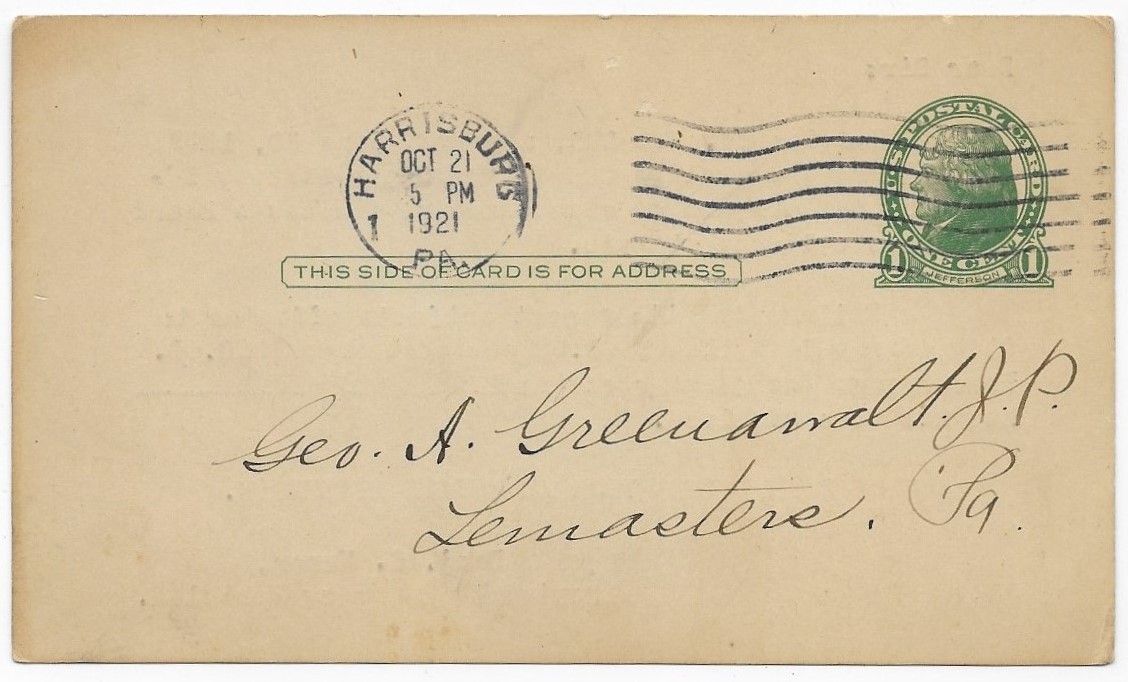 HARRISBURG
OCT 21
5 PM
1 1921
PA.
U.S. POSTAL CARD
ONE CENT
1 JEFFERSON 1
THIS SIDE OF CARD IS FOR ADDRESS
Geo. A. Greenawalt. J. P.
Lemasters, Pa.